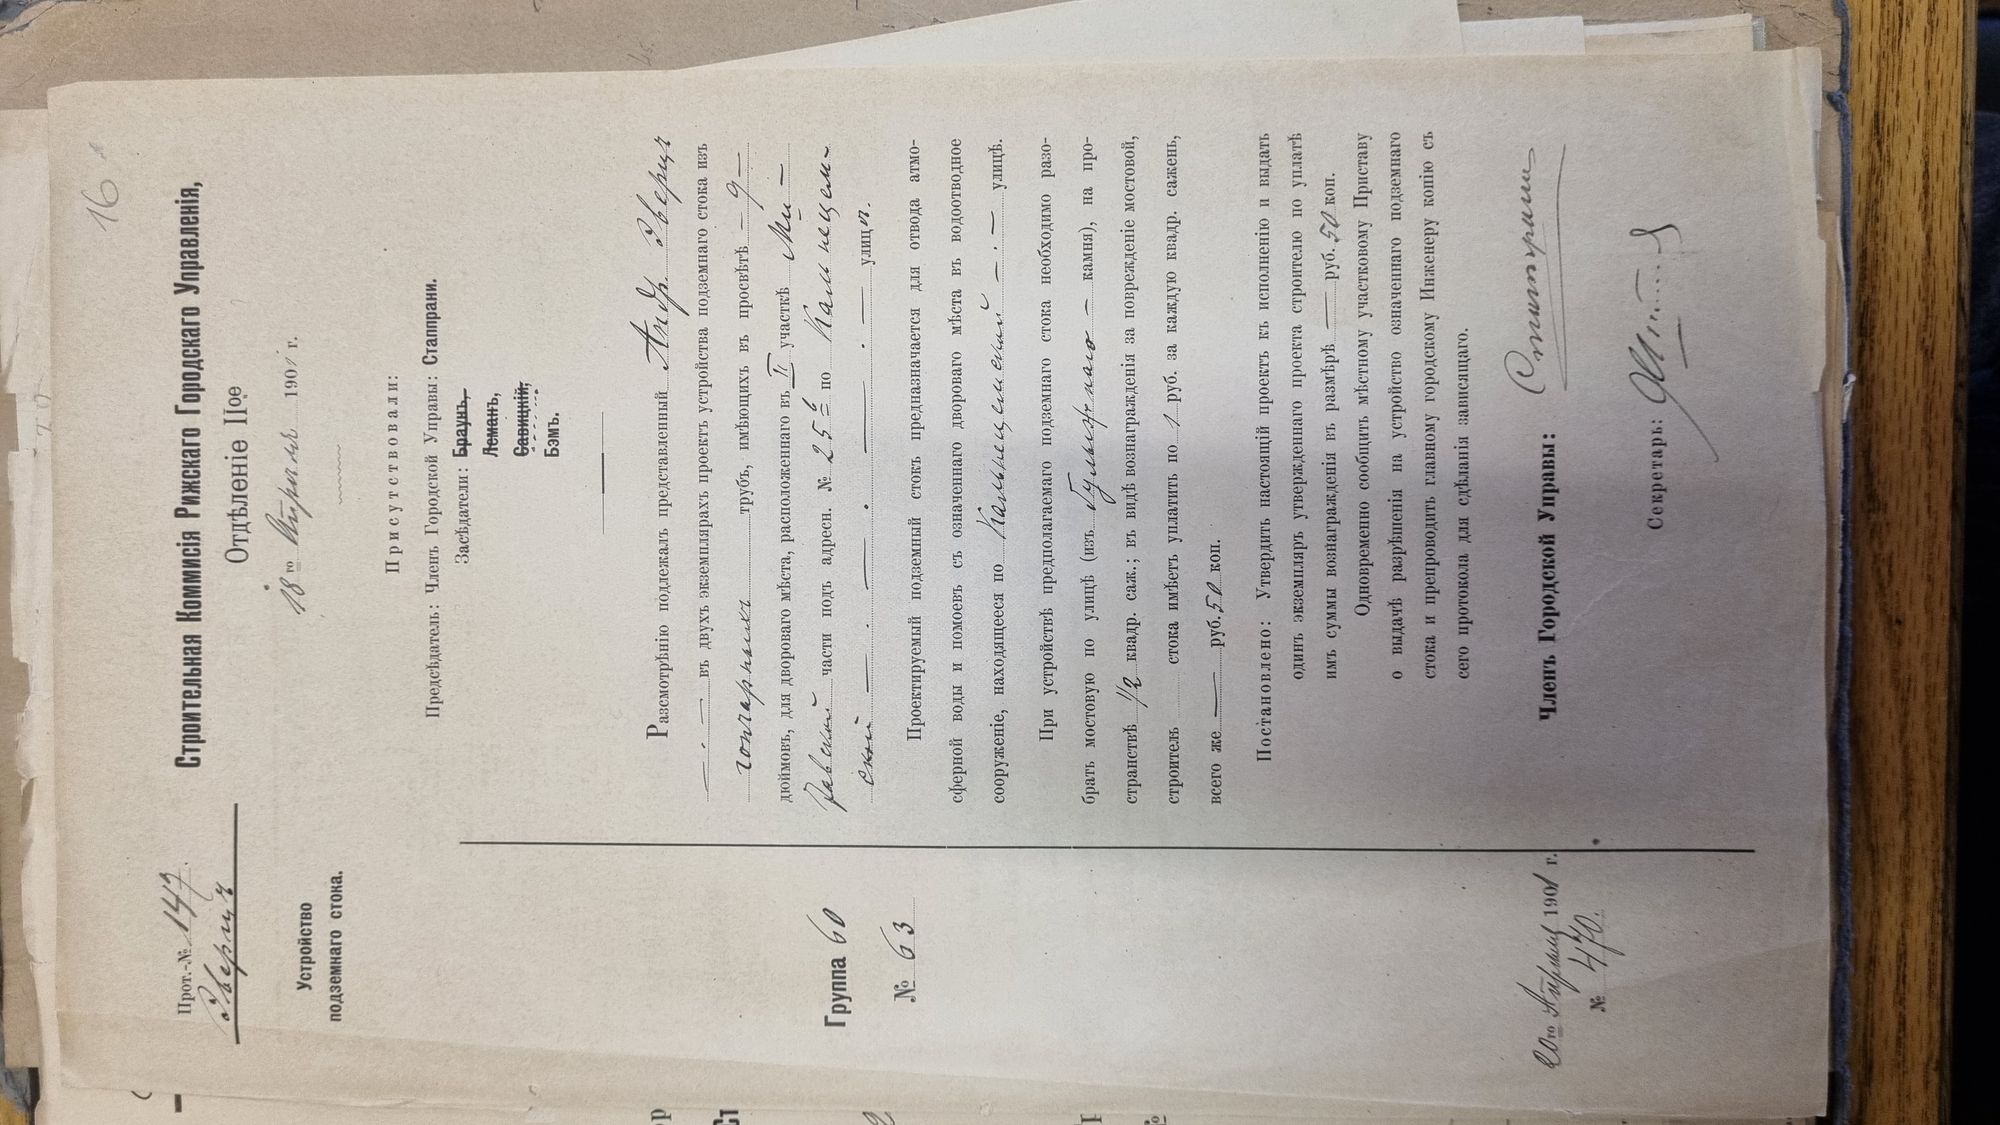 16
Прот.-№ 147
Эверцъ
Строительная Коммисія Рижскаго Городскаго Управленія,
Отдѣленіе IIое
18го Апрѣля 1901 г.
Устройство
подземнаго стока.
Присутствовали:
Предсѣдатель: Членъ Городской Управы: Стаппрани.
Засѣдатели: Браунъ,
Леманъ,
Савицкій,
Бэмъ.
Разсмотрѣнію подлежалъ представленный Андр. Эверцъ
въ двухъ экземплярахъ проектъ устройства подземнаго стока изъ
гончарныхъ трубъ, имѣющихъ въ просвѣтѣ — 9 —
дюймовъ, для двороваго мѣста, расположеннаго въ II участкѣ Ми-
тавской части подъ адресн. № 25б по Кальнецем-
ской улицѣ.
Группа 60
№ 63
Проектируемый подземный стокъ предназначается для отвода атмо-
сферной воды и помоевъ съ означеннаго двороваго мѣста въ водоотводное
сооруженіе, находящееся по Кальнецемской улицѣ.
При устройствѣ предполагаемаго подземнаго стока необходимо разо-
брать мостовую по улицѣ (изъ булыжнаго камня), на про-
странствѣ 1/2 квадр. саж.; въ видѣ вознагражденія за поврежденіе мостовой,
строитель стока имѣетъ уплатить по 1 руб. за каждую квадр. сажень,
всего же — руб. 50 коп.
Постановлено: Утвердить настоящій проектъ къ исполненію и выдать
одинъ экземпляръ утвержденнаго проекта строителю по уплатѣ
имъ суммы вознагражденія въ размѣрѣ — руб. 50 коп.
Одновременно сообщить мѣстному участковому Приставу
о выдачѣ разрѣшенія на устройство означеннаго подземнаго
стока и препроводить главному городскому Инженеру копію съ
сего протокола для сдѣланія зависящаго.
Членъ Городской Управы: Стаппрани
Секретарь:
20го Апрѣля 1901 г.
№ 470.